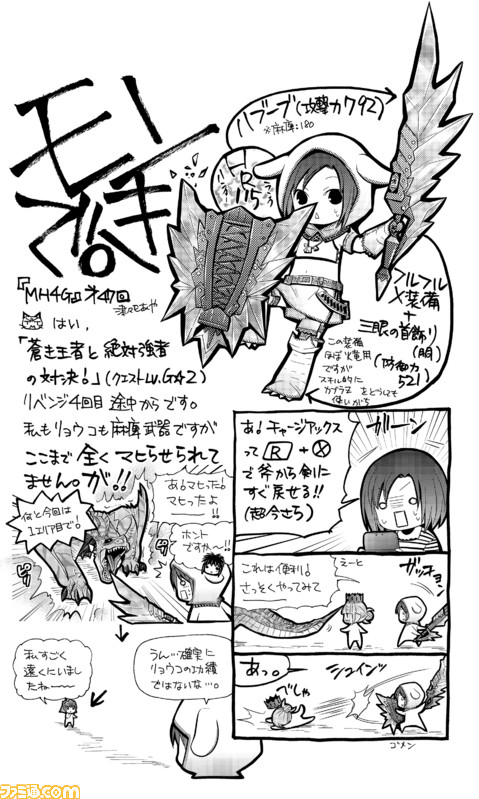 モン
スキ
。
ハブーブ(攻撃力792)
※麻痺:180
R
フルフル
X装備
+
三眼の首飾り
(防御力
521)
この装備
ほぼ火竜用
ですが
スキル的に
カブラZ をどうしても
使いがち
『MH4G』第47回
津々巳あや
はい,
「蒼き王者と絶対強者
の対決!」(クエストLv.G☆2)
リベンジ4回目 途中からです。
私もリョウコも麻痺武器ですが
ここまで全くマヒらせられて
ません。が!!
何と今回は
1エリア目で!
あ!マヒった!
マヒったよ
ー!!
ホント
ですや〜!!
私すごく
遠くにいまし
たね〜
うん…確実に
リョウコの功績
ではないな…。
あ!チャージアックス
って R + X
で斧から剣に
すぐ戻せる!!
(超今さら)
ガーン
これは便利!
さっそくやってみて
えーと
ガッチョン
あっ。
シュイン
べしゃ
ゴメン
ファミ通.com